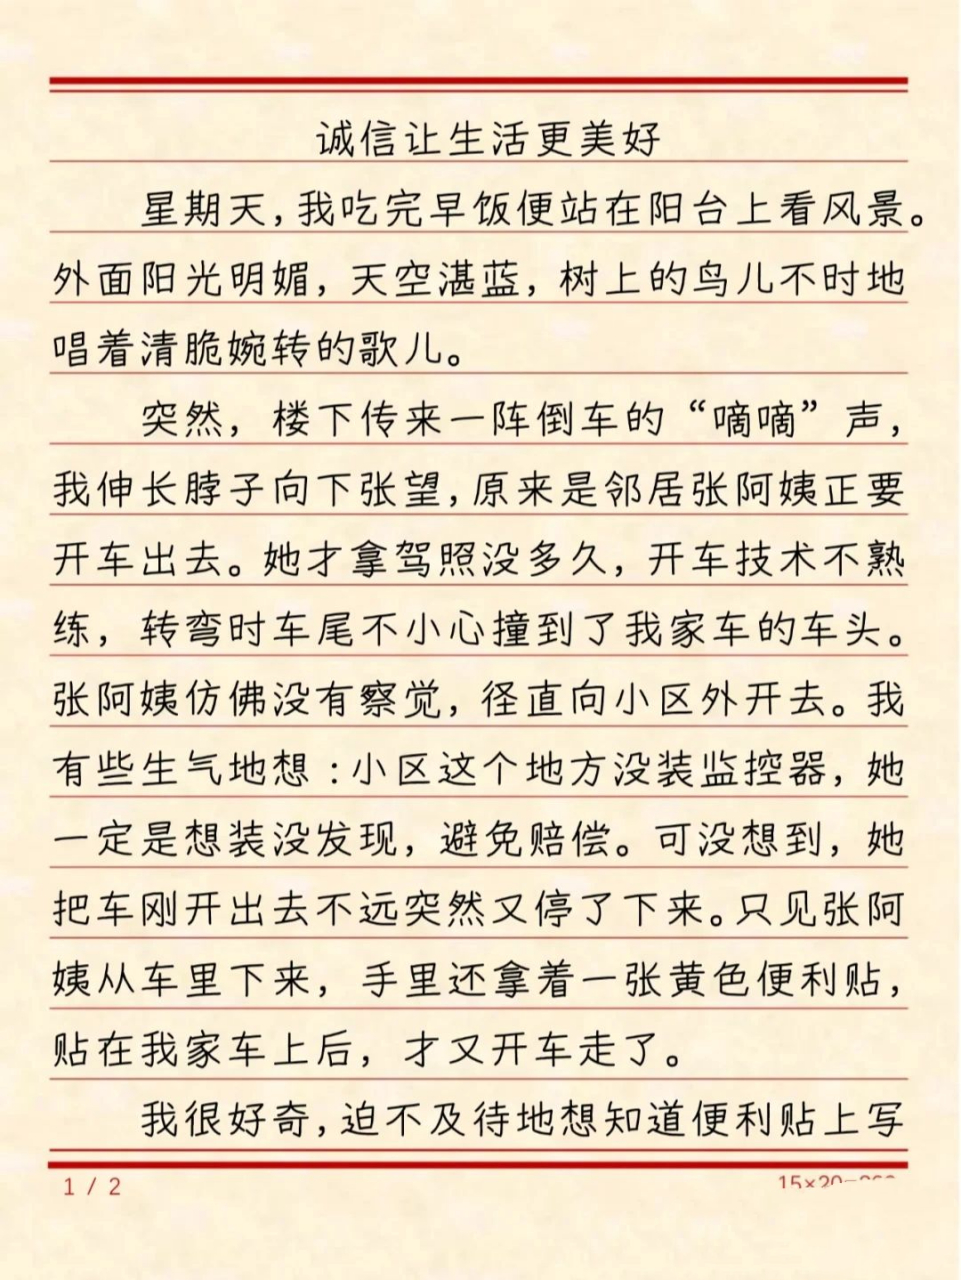 诚信让生活更美好
星期天,我吃完早饭便站在阳台上看风景。
外面阳光明媚，天空湛蓝，树上的鸟儿不时地
唱着清脆婉转的歌儿。
突然，楼下传来一阵倒车的“嘀嘀”声，
我伸长脖子向下张望,原来是邻居张阿姨正要
开车出去。她才拿驾照没多久，开车技术不熟
练，转弯时车尾不小心撞到了我家车的车头。
张阿姨仿佛没有察觉，径直向小区外开去。我
有些生气地想:小区这个地方没装监控器，她
一定是想装没发现，避免赔偿。可没想到，她
把车刚开出去不远突然又停了下来。只见张阿
姨从车里下来，手里还拿着一张黄色便利贴，
贴在我家车上后，才又开车走了。
我很好奇,迫不及待地想知道便利贴上写
1 / 2
15×20